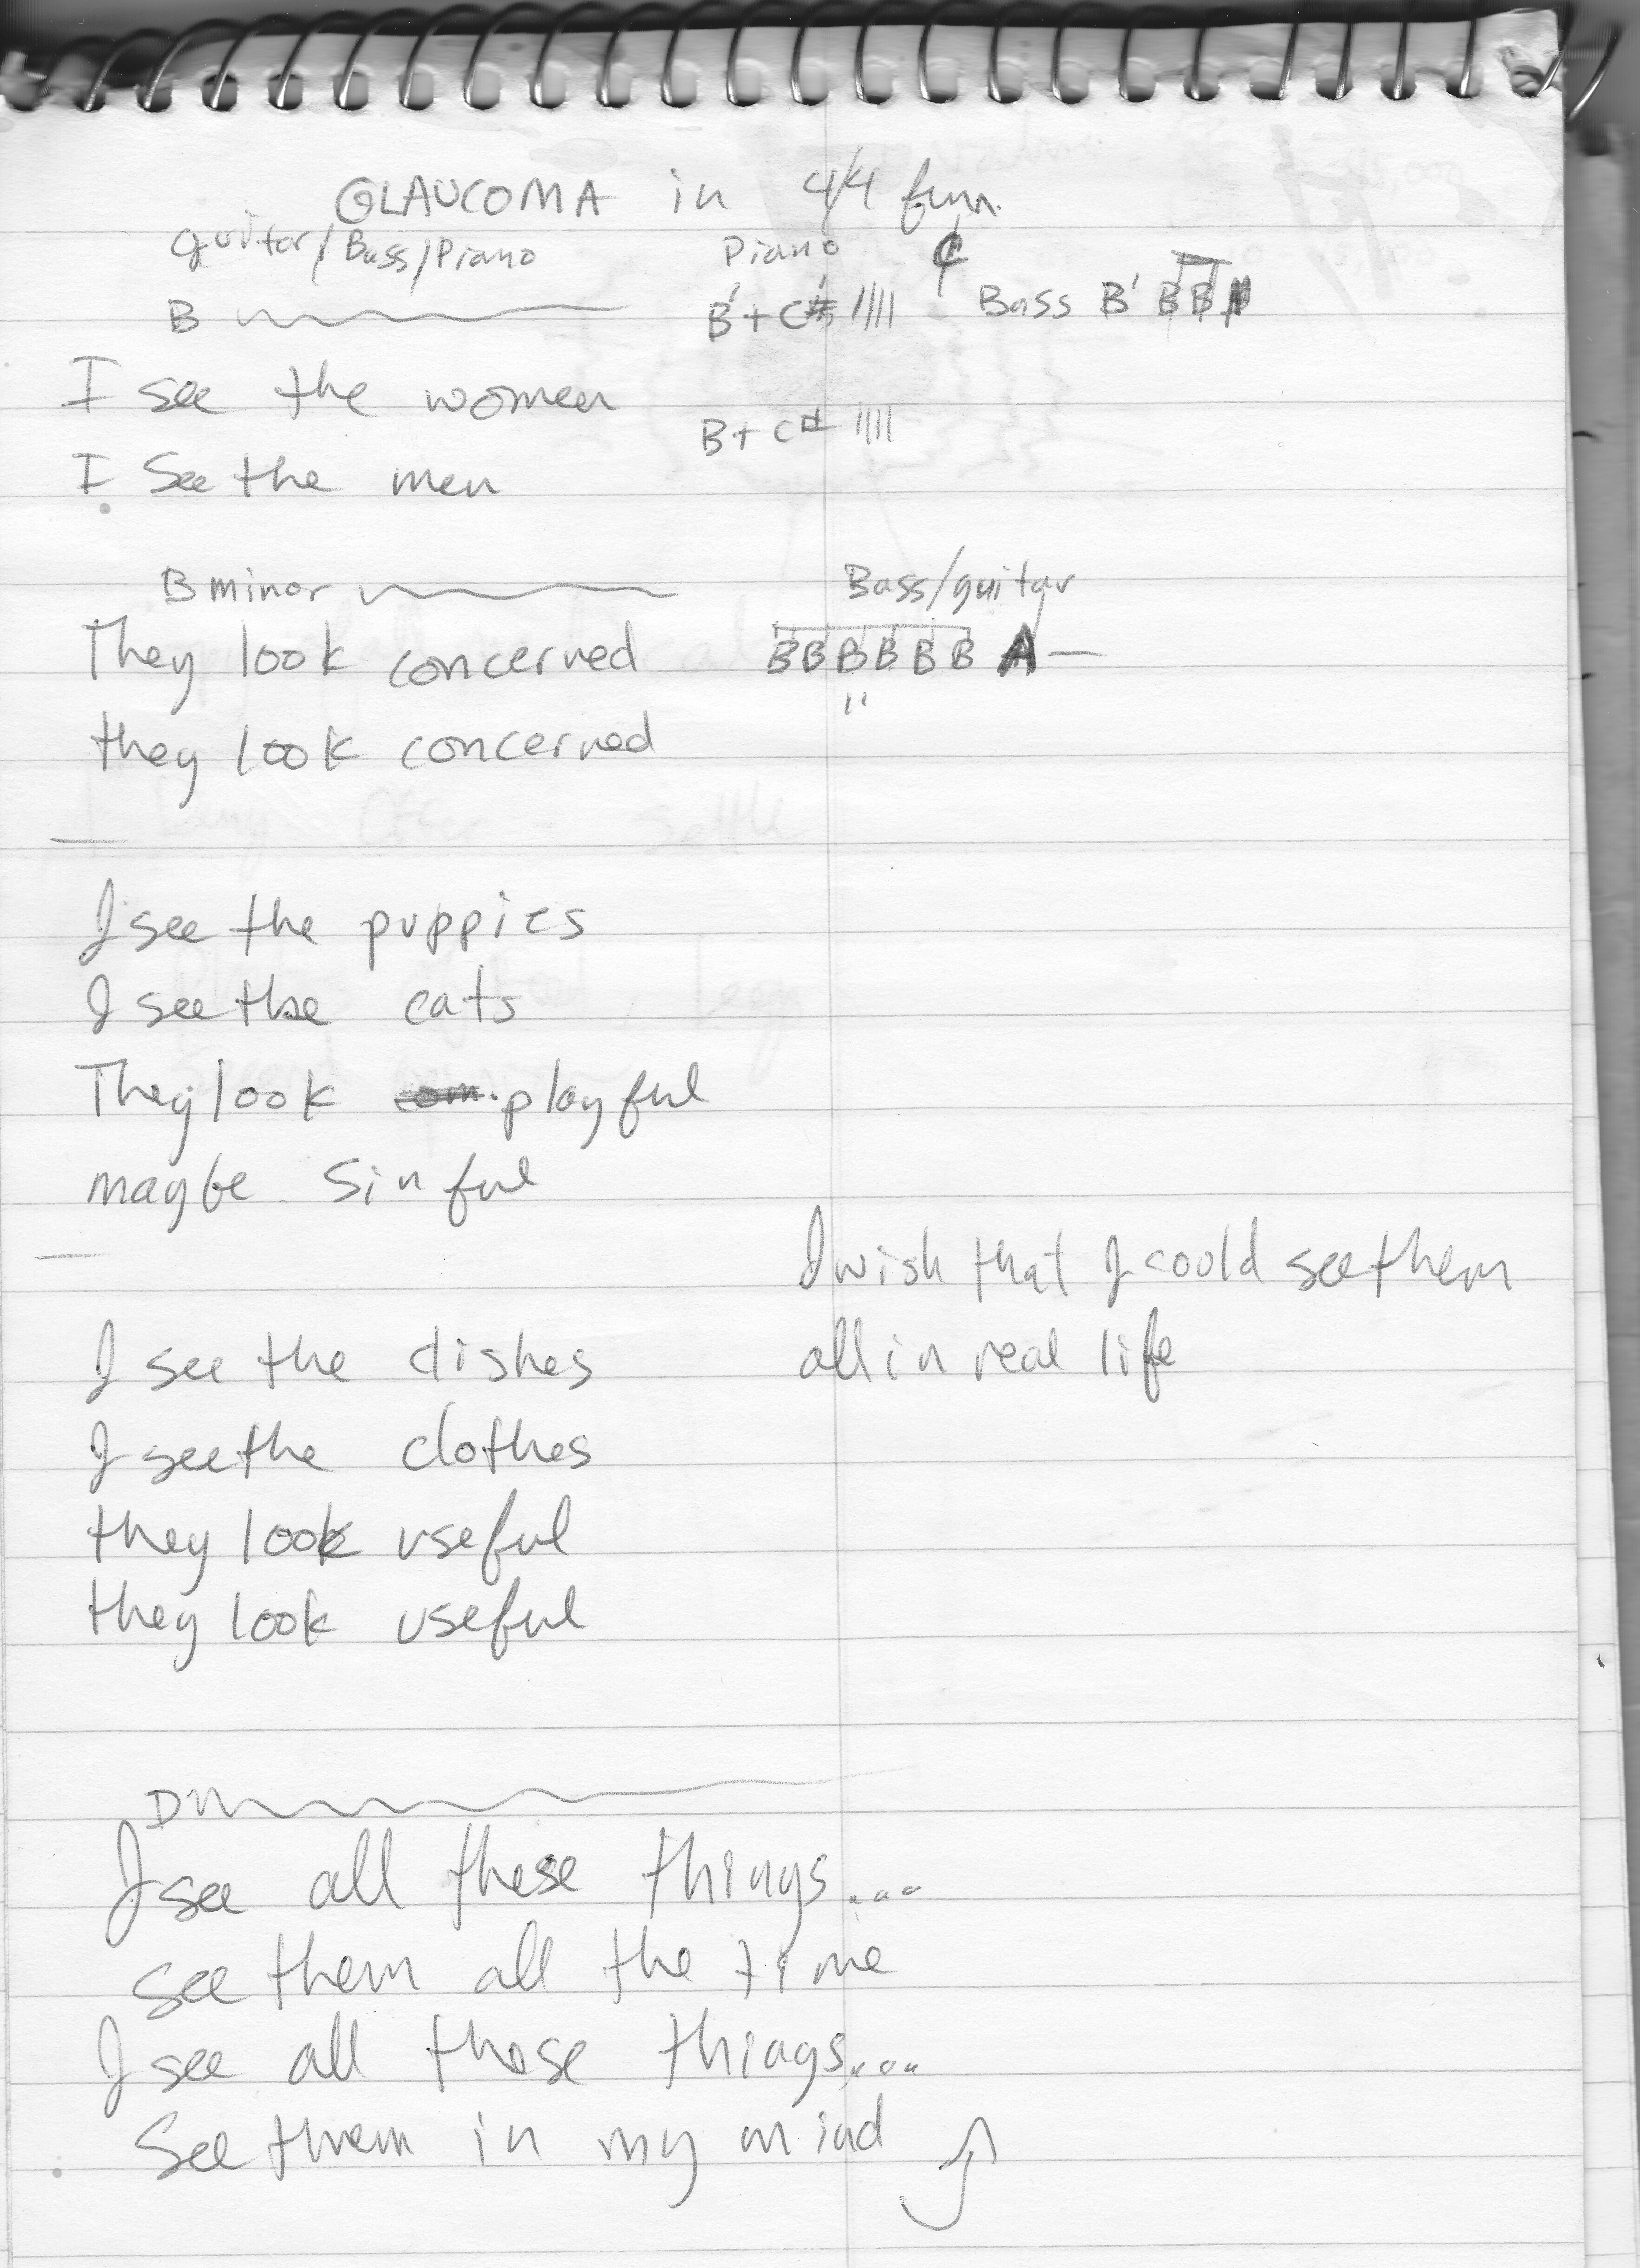 GLAUCOMA in 4/4
guitar/Bass/Piano
Piano
B
B + C# ||||
Bass B' B B
I see the women
B + C# ||||
I see the men
B minor
Bass/guitar
They look concerned
B B B B B B A —
"
they look concerned
I see the puppies
I see the cats
They look playful
maybe sinful
I see the dishes
I see the clothes
they look useful
they look useful
I wish that I could see them
all in real life
D
I see all these things...
see them all the time
I see all those things...
See them in my mind